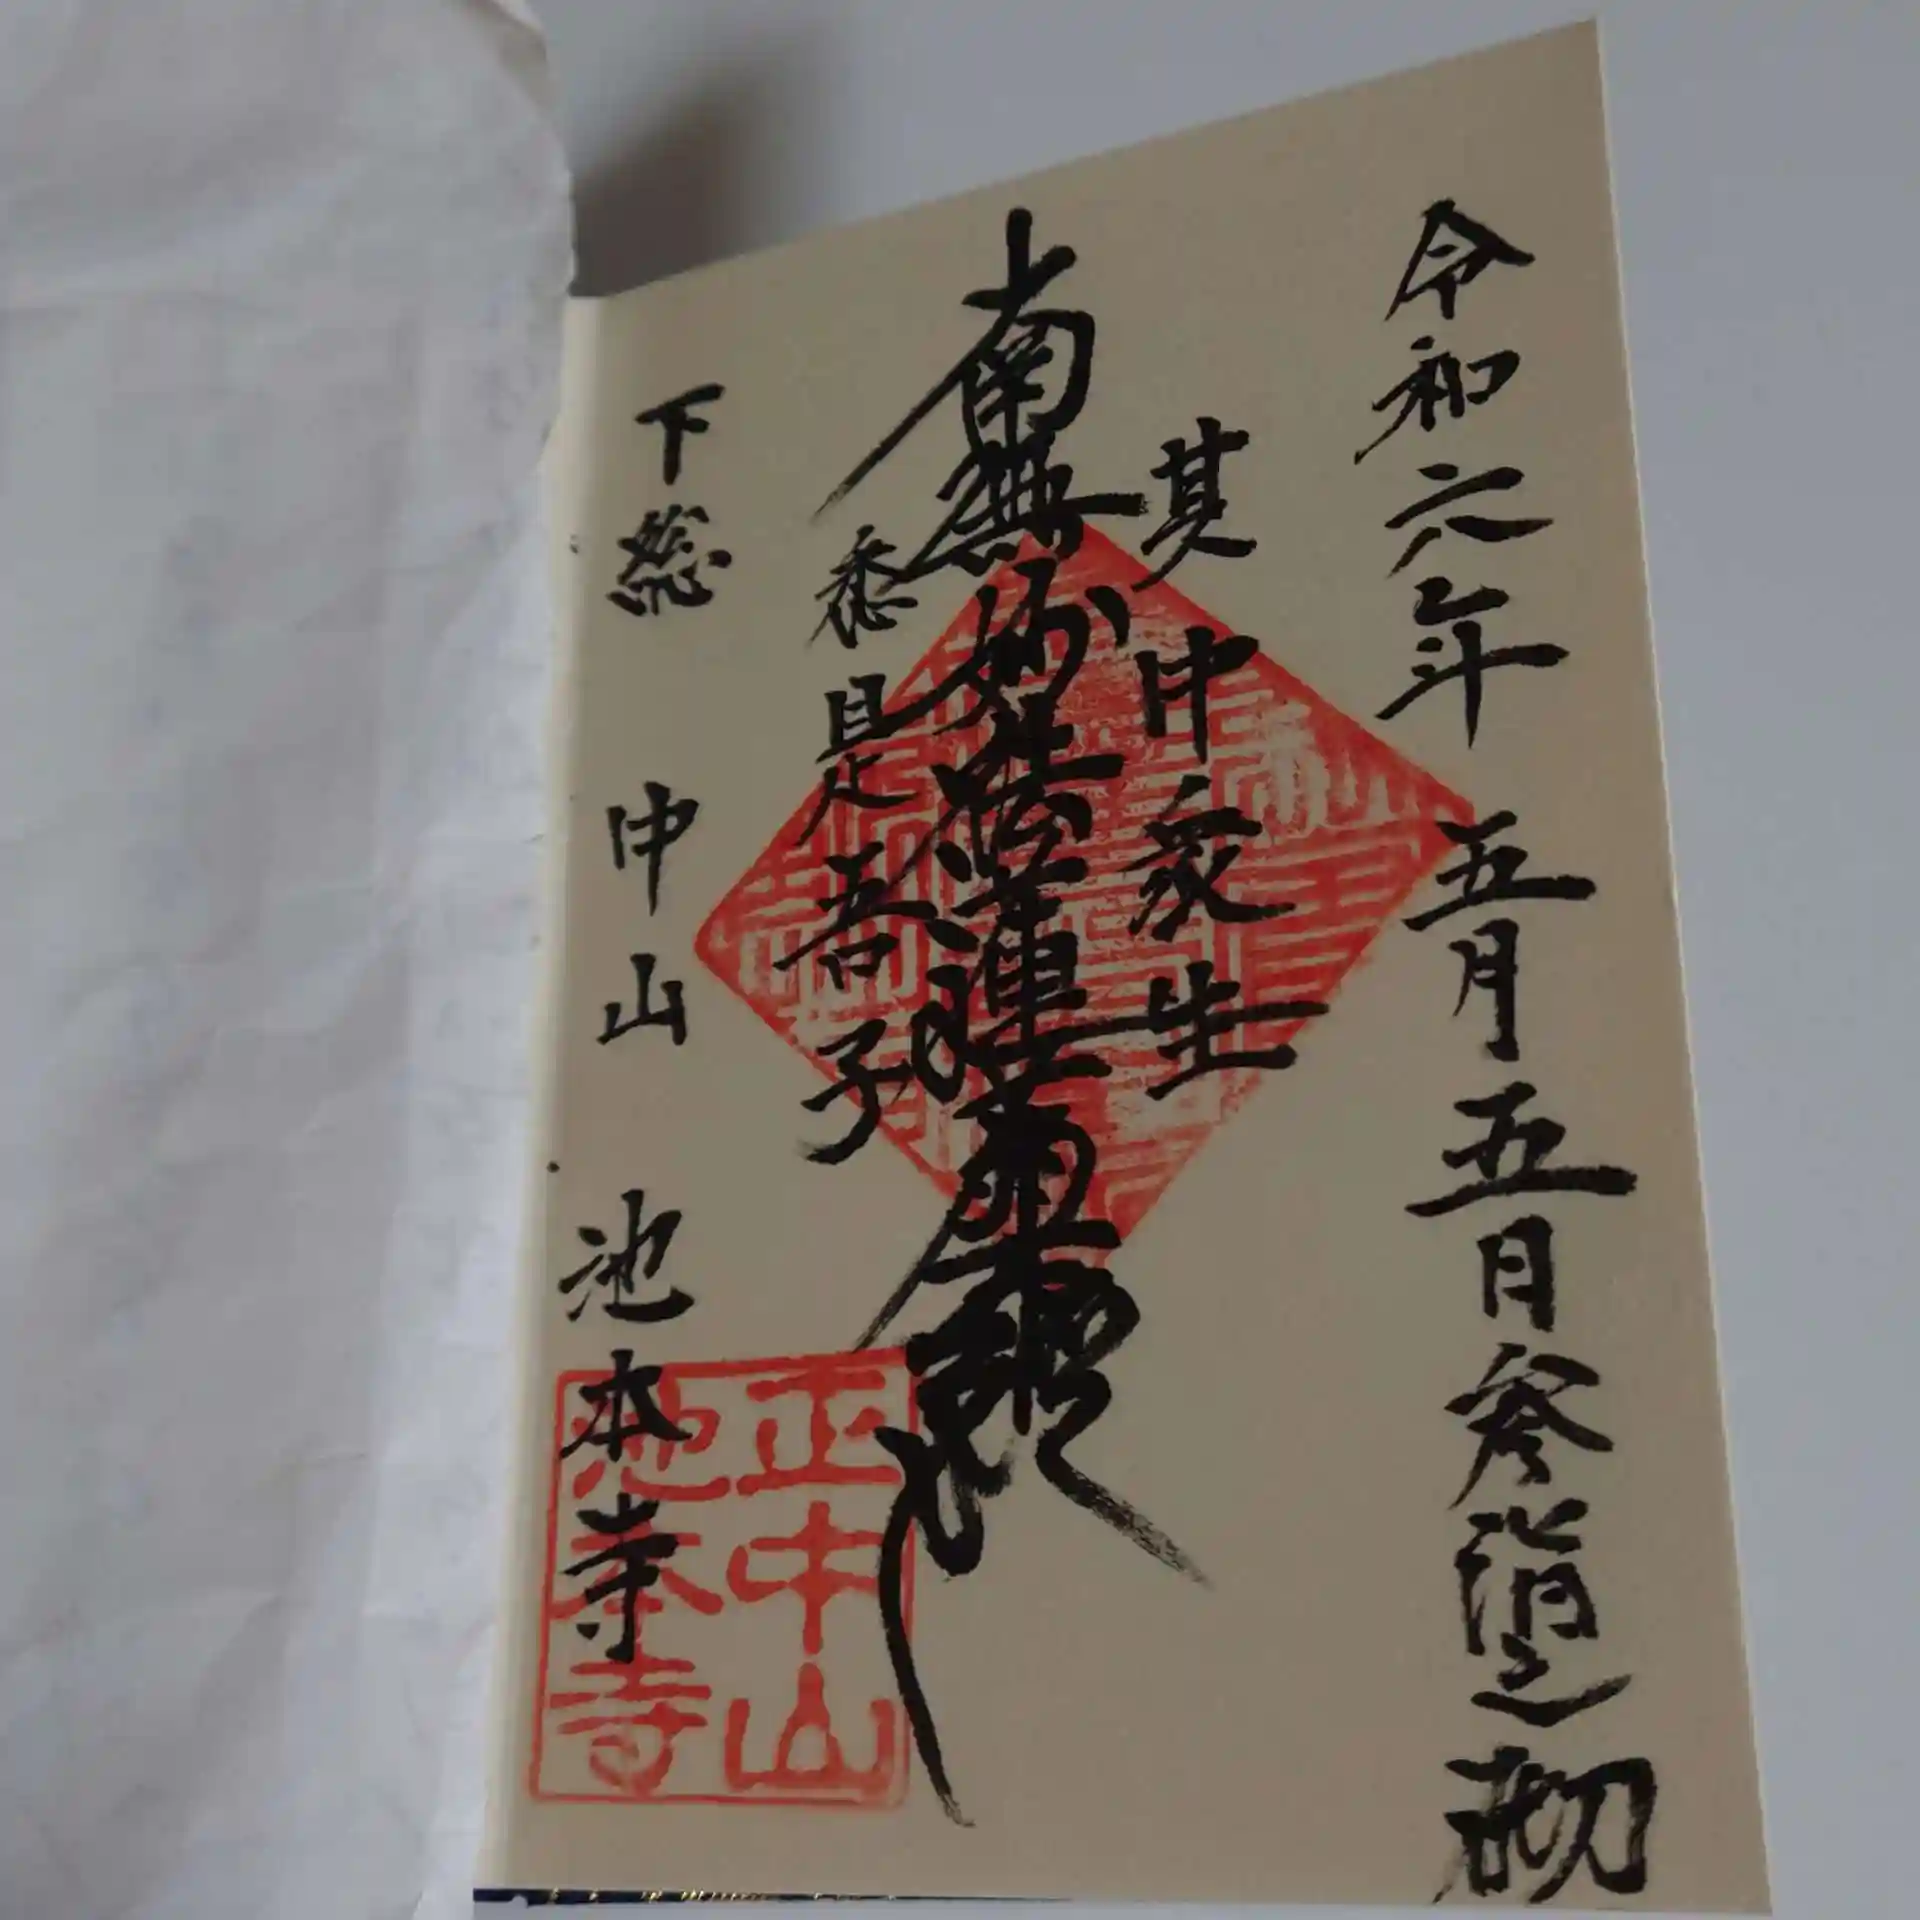 令和六年 五月五日参詣之砌
其中衆生
南無妙法蓮華経
悉是吾子
下総 中山 池本寺
正中山
池本寺